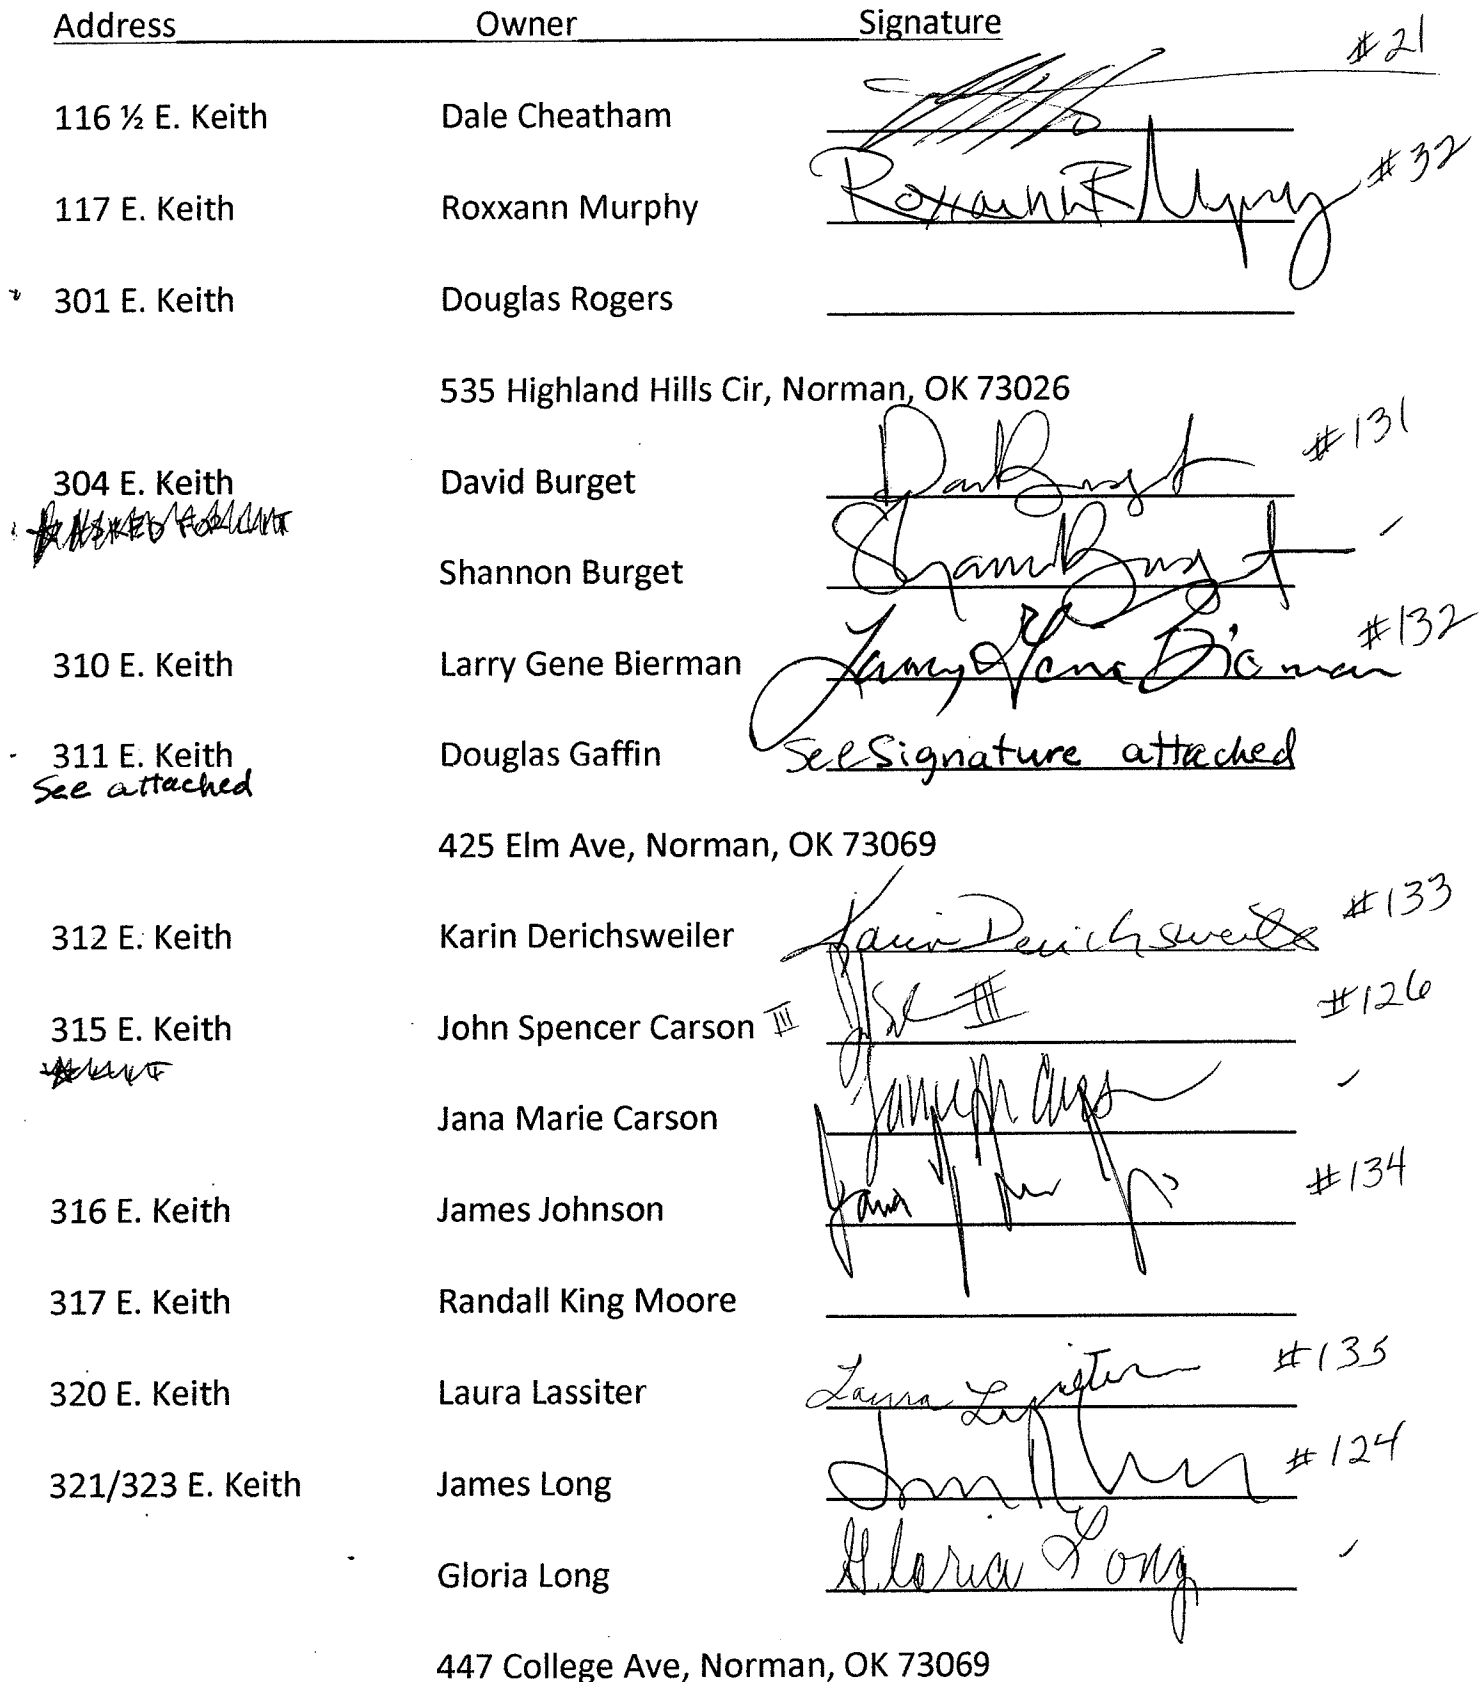 Address Owner Signature
#21
116 ½ E. Keith Dale Cheatham
117 E. Keith Roxxann Murphy Roxxann R Murphy #32
301 E. Keith Douglas Rogers
535 Highland Hills Cir, Norman, OK 73026
304 E. Keith David Burget #131
Shannon Burget
310 E. Keith Larry Gene Bierman Larry Gene Bierman #132
311 E. Keith Douglas Gaffin See Signature attached
See attached
425 Elm Ave, Norman, OK 73069
312 E. Keith Karin Derichsweiler Karin Derichsweiler #133
315 E. Keith John Spencer Carson III III #126
Jana Marie Carson
316 E. Keith James Johnson #134
317 E. Keith Randall King Moore
320 E. Keith Laura Lassiter Laura Lassiter #135
321/323 E. Keith James Long #124
Gloria Long Gloria Long
447 College Ave, Norman, OK 73069